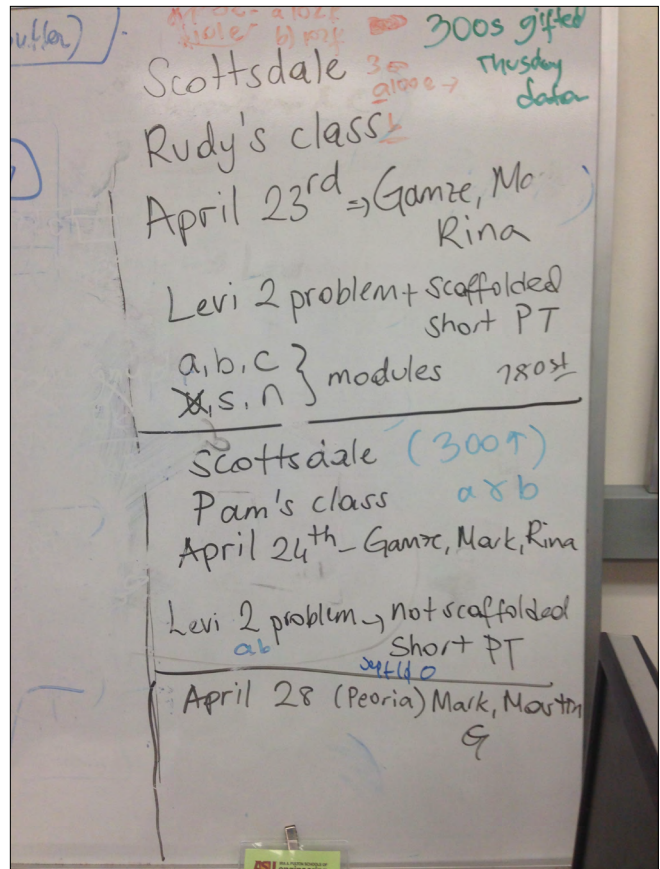 300s gifted
Thusday
data
Scottsdale
Rudy's class
April 23rd ⇒ Gamze, Mo
Rina
Levi 2 problem + scaffolded
short PT
a, b, c
s, n } modules
Scottsdale (300↑)
Pam's class
April 24th - Gamze, Mark, Rina
Levi 2 problem → not scaffolded
ab short PT
April 28 (Peoria) Mark, Martin
G
ASU